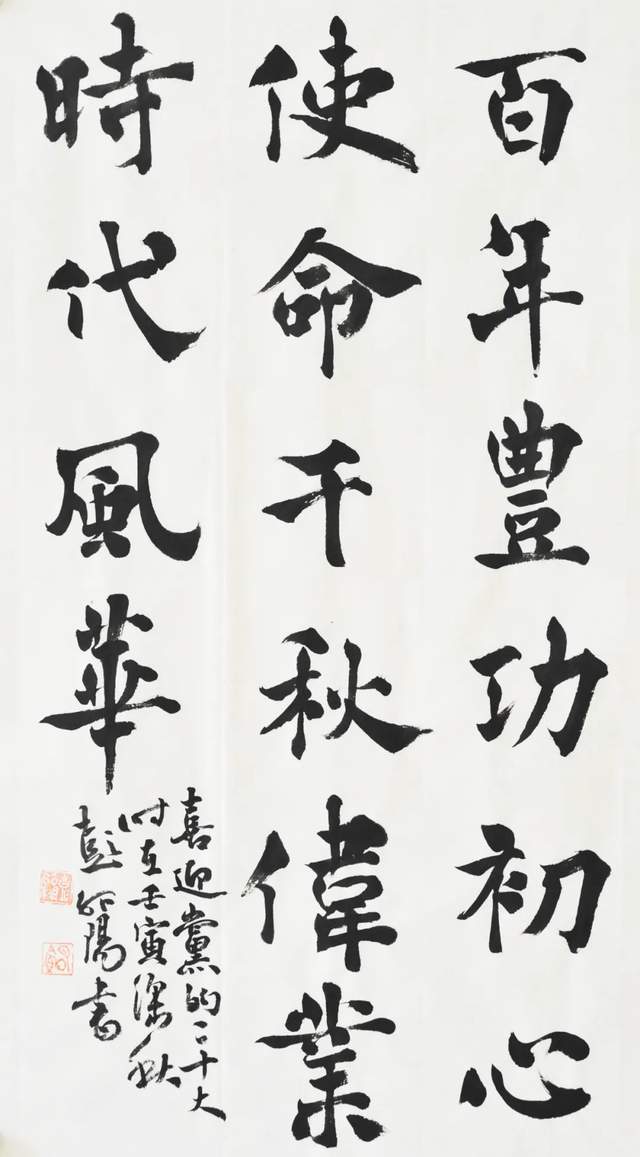 百年豐功初心
使命千秋偉業
時代風華
喜迎黨的二十大
时在壬寅深秋
彭陽書